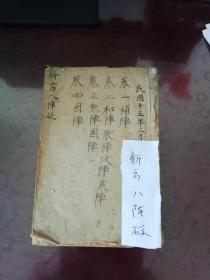 民國十五年二月
卷一補陣
卷二和陣散陣攻陣寒陣
卷三熱陣固陣
卷四因陣
新方八陣砭
新方八陈砭